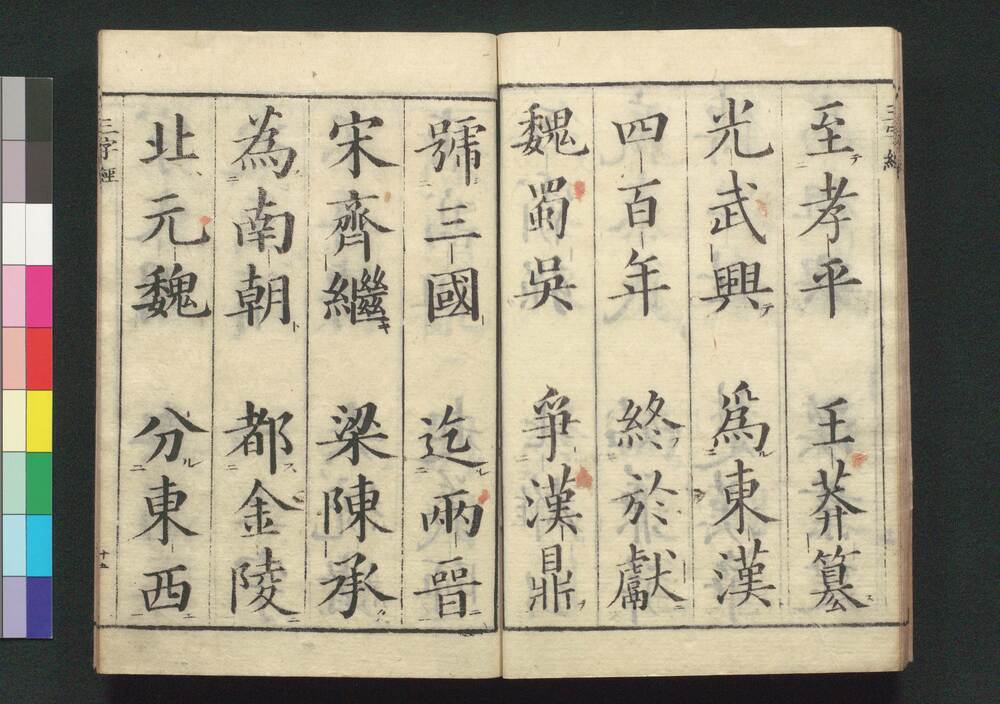 三字經
至孝平 王莽篡
光武興 爲東漢
四百年 終於獻
魏蜀吳 爭漢鼎
號三國 迄兩晉
宋齊繼 梁陳承
為南朝 都金陵
北元魏 分東西
三字經
十五